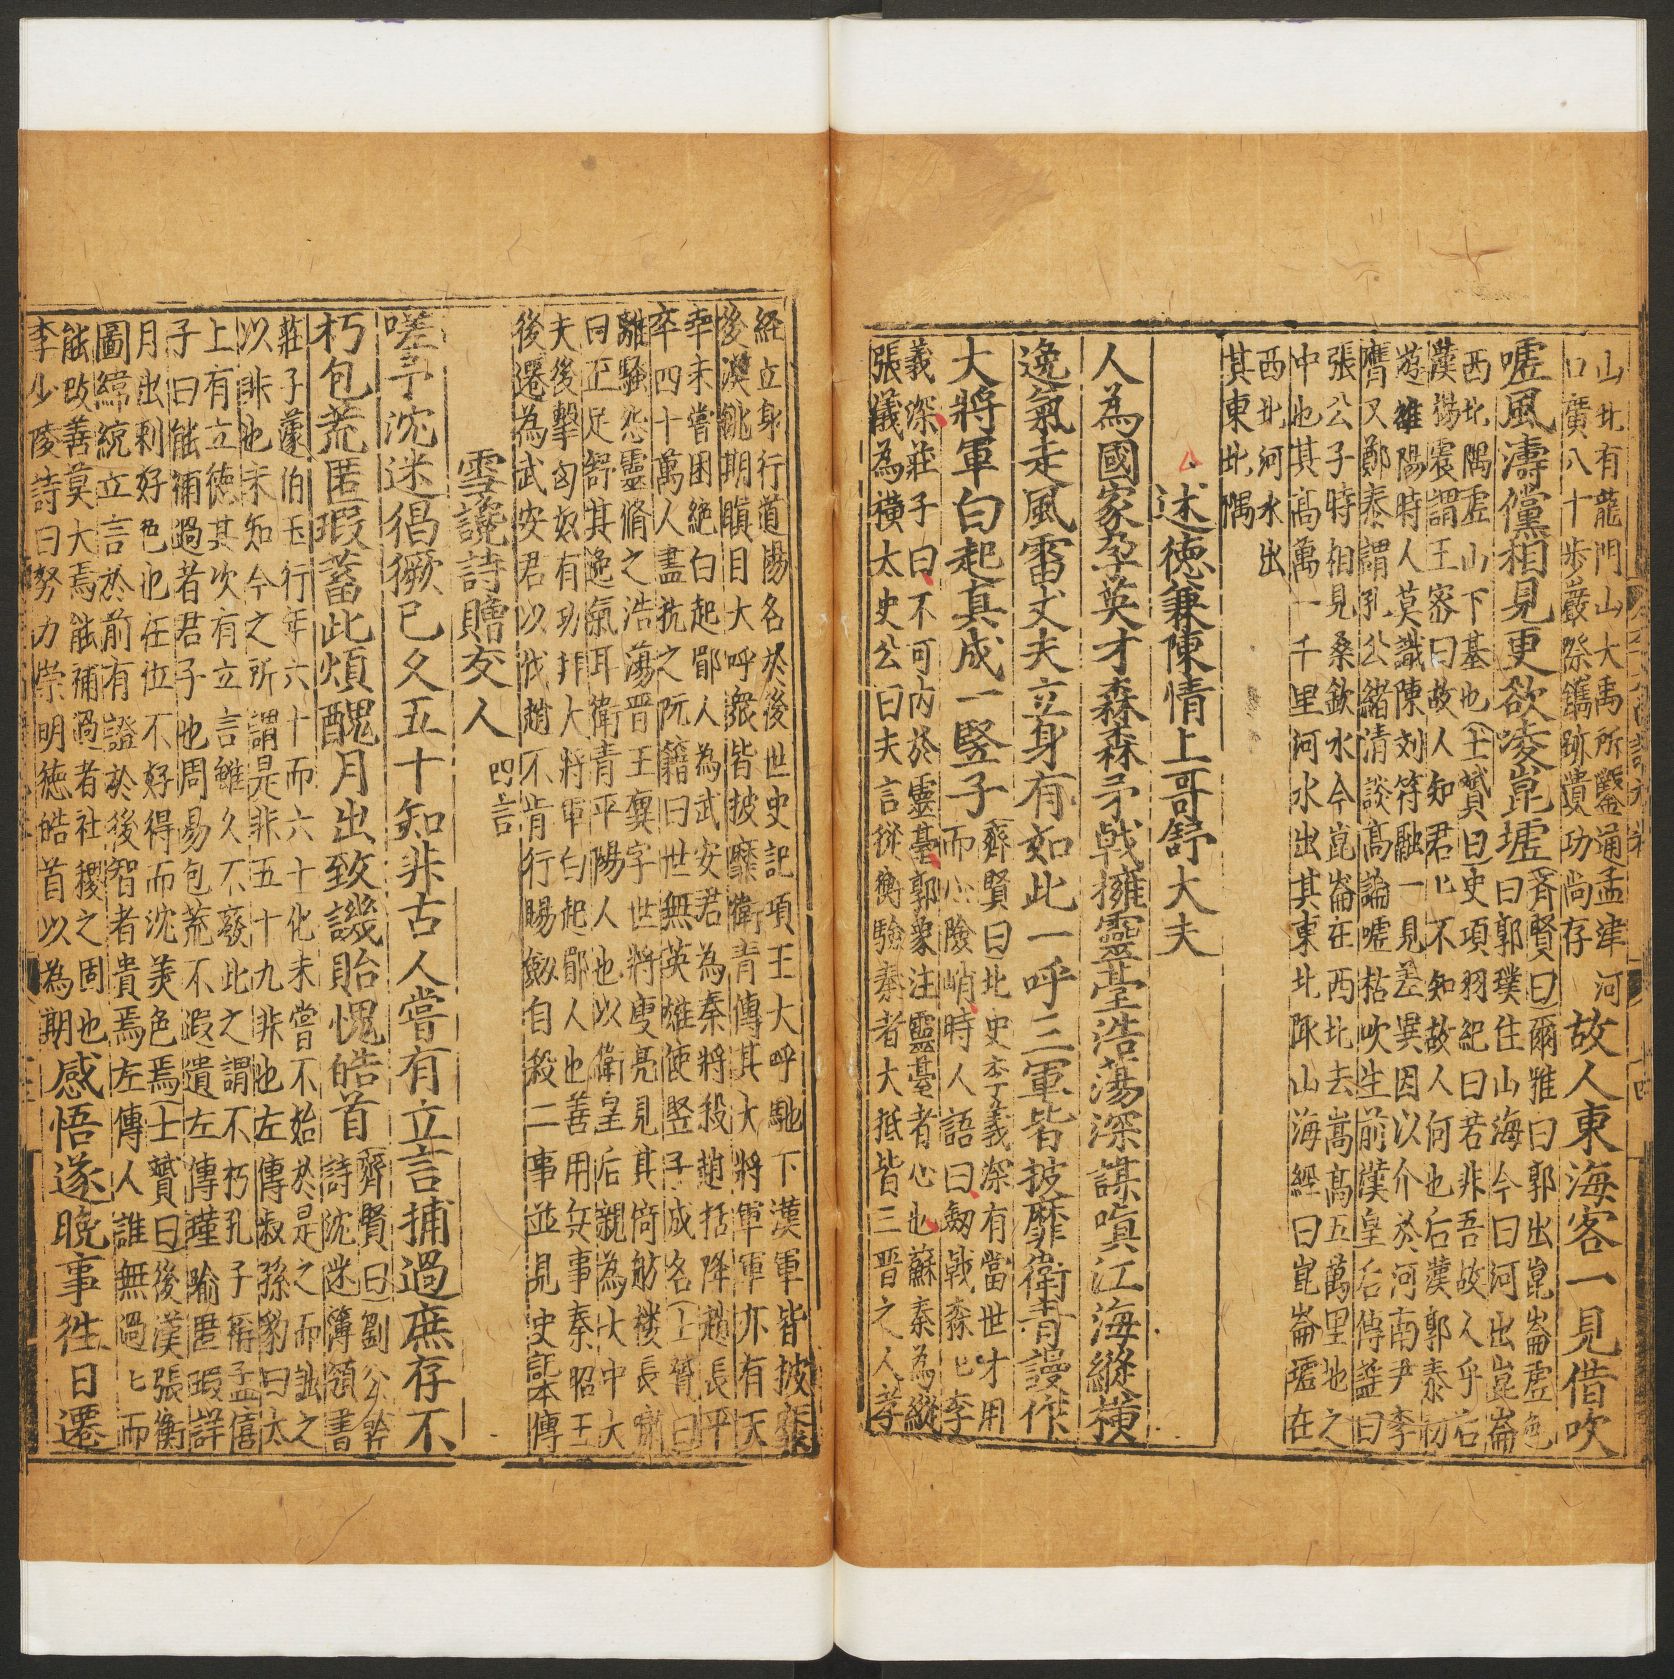 山北有龍門山大禹所鑿通孟津河
口廣八十步巖際鐫跡遺功尚存
故人東海客一見借吹
噓風濤儻相見更欲凌崑墟
齊賢曰爾雅曰郭出崑崙虛色
曰郭璞住山海今曰河出崑崙
西北隅虛山下基也士贇曰史項羽紀曰若非吾故人乎右
漢楊震謂王密曰故人知君匕不知故人何也后漢郭泰初
遊雒陽時人莫識陳刘符融一見差異因以介於河南尹李
膺又鄭泰謂孔公緒清談高論噓枯吹生前漢皇后傳蓋曰
張公子時相見桑欽水今崑崙在西北去嵩高五萬里地之
中也其高萬一千里河水出其東北陬山海經曰崑崙墟在
西北河水出
其東北隅
述德兼陳情上哥舒大夫
人為國家孕英才森森矛戟擁靈臺浩蕩深謀噴江海縱橫
逸氣走風雷丈夫立身有如此一呼三軍皆披靡衛青謾作
大將軍白起真成一竪子
齊賢曰北史李義深有當世才用
而心險峭時人語曰劒戟森匕李
義深莊子曰不可内於靈臺郭象注靈臺者心也蘇秦為縱
張儀為橫太史公曰夫言從衡驗秦者大抵皆三晉之人孝
経立身行道揚名於後世史記項王大呼馳下漢軍皆披靡
後漢銚期瞋目大呼衆皆披靡衛青傳其大將軍軍亦有天
幸未嘗困絶白起郿人為武安君為秦將殺趙括降趙長平
卒四十萬人盡抗之阮籍曰世無英雄使竪子成名士贇曰
離騷怨靈脩之浩蕩晋王奭字世將庾亮見其倚舫楼長嘯
曰正足舒其逸氣耳衛青平陽人也以衛皇后親為大中大
夫後擊匈奴有功拝大將軍白起郿人也善用兵事秦昭王
後遷為武安君以伐趙不肯行賜劒自殺二事並見史記本傳
雪讒詩贈友人 四言
嗟予沈迷猖獗已久五十知非古人嘗有立言捕過庶存不
朽包荒匿瑕蓄此煩醜月出致譏貽愧皓首
齊賢曰劉公幹
詩沈迷簿領書
莊子蘧伯玉行年六十而六十化未嘗不始於是之而詘之
以非也未知今之所謂是非五十九非也左傳叔孫豹曰太
上有立德其次有立言雖久不廢此之謂不朽孔子稱孟僖
子曰能補過者君子也周易包荒不遐遺左傳瑾瑜匿瑕詳
月出刺好色也在位不好得而沈羙色焉士贇曰後漢張衡
圖緯統立言於前有證於後智者貴焉左傳人誰無過匕而
能改善莫大焉能補過者社稷之固也
李少陵詩曰努力崇明德皓首以為期
感悟遂晚事徃日遷